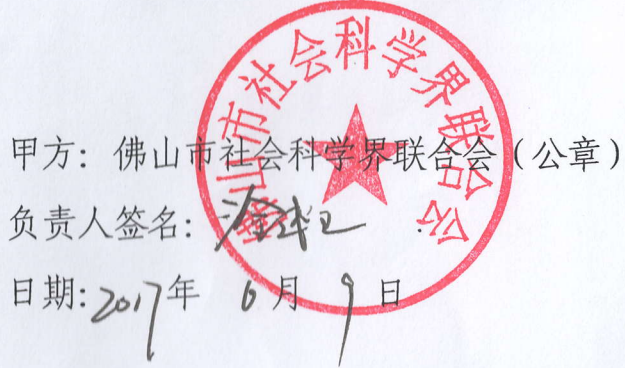 佛山市社会科学界联合会
甲方：佛山市社会科学界联合会（公章）
负责人签名：
日期：2017年 6月 9日